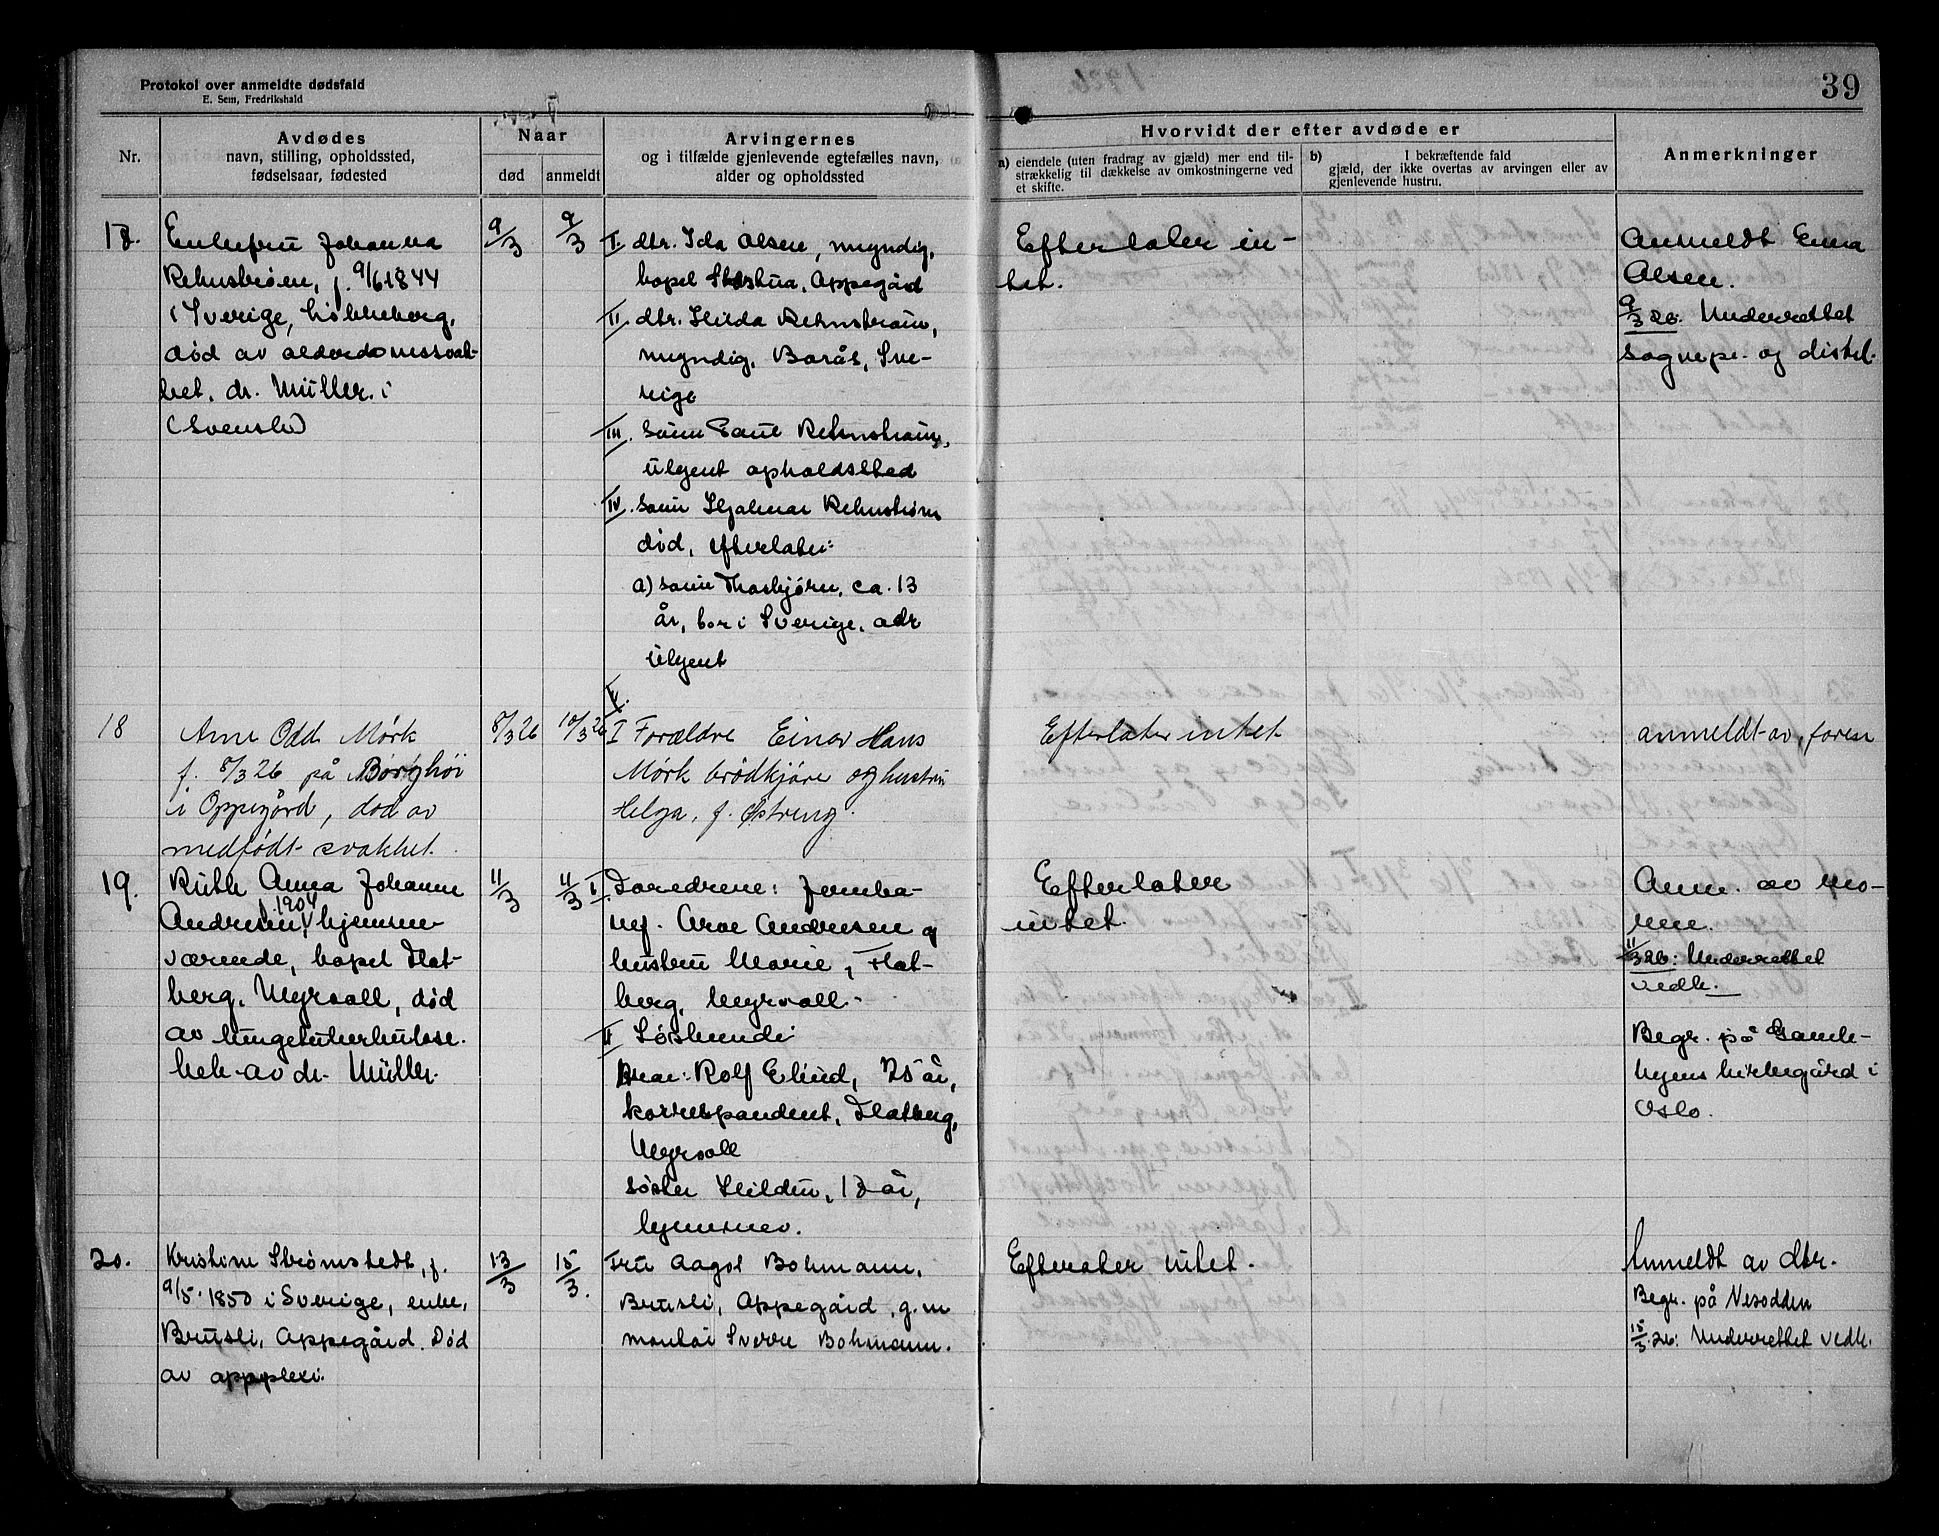 39
Protokol over anmeldte dødsfald
E. Sem, Fredrikshald
Nr.
Avdødes
navn, stilling, opholdssted,
fødselsaar, fødested
Naar
død
anmeldt
Arvingernes
og i tilfælde gjenlevende egtefælles navn,
alder og opholdssted
Hvorvidt der efter avdøde er
a) eiendele (uten fradrag av gjæld) mer end til-
strækkelig til dækkelse av omkostningerne ved
et skifte.
b) I bekræftende fald
gjæld, der ikke overtas av arvingen eller av
gjenlevende hustru.
Anmerkninger
17.
Enkefru Johanna
f. 9/6 1844
i Sverige,
død av alderdomssvak-
het, dr. Müller.
(svensk)
9/3
9/3
I. dtr. Ida Olsen, myndig,
bopel Oppegård
II. dtr. Hilda Rehnstrøm,
myndig, Borås, Sve-
rige
III. sønn Rehnstrøm,
ukjent opholdssted
IV. sønn Hjalmar Rehnstrøm
død, efterlater:
a) sønn Thorbjørn, ca. 13
år, bor i Sverige, adr
ukjent
V.
Efterlater in-
tet.
Anmeldt
Olsen.
9/3 26: Underrettet
sognepr. og
18
Arne Odd Mørk
f. 8/3 26 på Borghöi
i Oppegård, død av
medfødt svakhet.
8/3 26
10/3 26
I Forældre Einar Hans
Mørk brödkjöre og hustru
Helga, f. Østreng.
Efterlater intet
anmeldt av, faren
19.
Ruth Anna Johanne
Andresen, f. 1904 hjemme-
værende, bopel Flat-
berg, Myrvoll, død
av lungetuberkulose.
beh. av dr. Müller.
11/3
11/3
I. Foreldrene: Jernba-
nef. Arne Andresen og
hustru Marie, Flat-
berg, Myrvoll.
II Søskende:
Bror: Rolf 25 år,
korrespondent, Flatberg,
Myrvoll
søster Hildur, 17 år,
hjemmev.
Efterlater
intet.
Anm. av mo-
ren.
11/3 26: Underrettet
vedk.
Begr. på Gamle-
byens kirkegård i
Oslo.
20.
Kristine Strømstedt, f.
9/5. 1850 i Sverige, enke,
Brusli, Oppegård. Død
av apoplexi.
13/3
15/3.
Fru Aagot Bohmann,
Brusli, Oppegård, g.m
montør Sverre Bohmann.
Efterlater intet.
Anmeldt av dtr.
Begr. på Nesodden
15/3.26: Underrettet vedk.